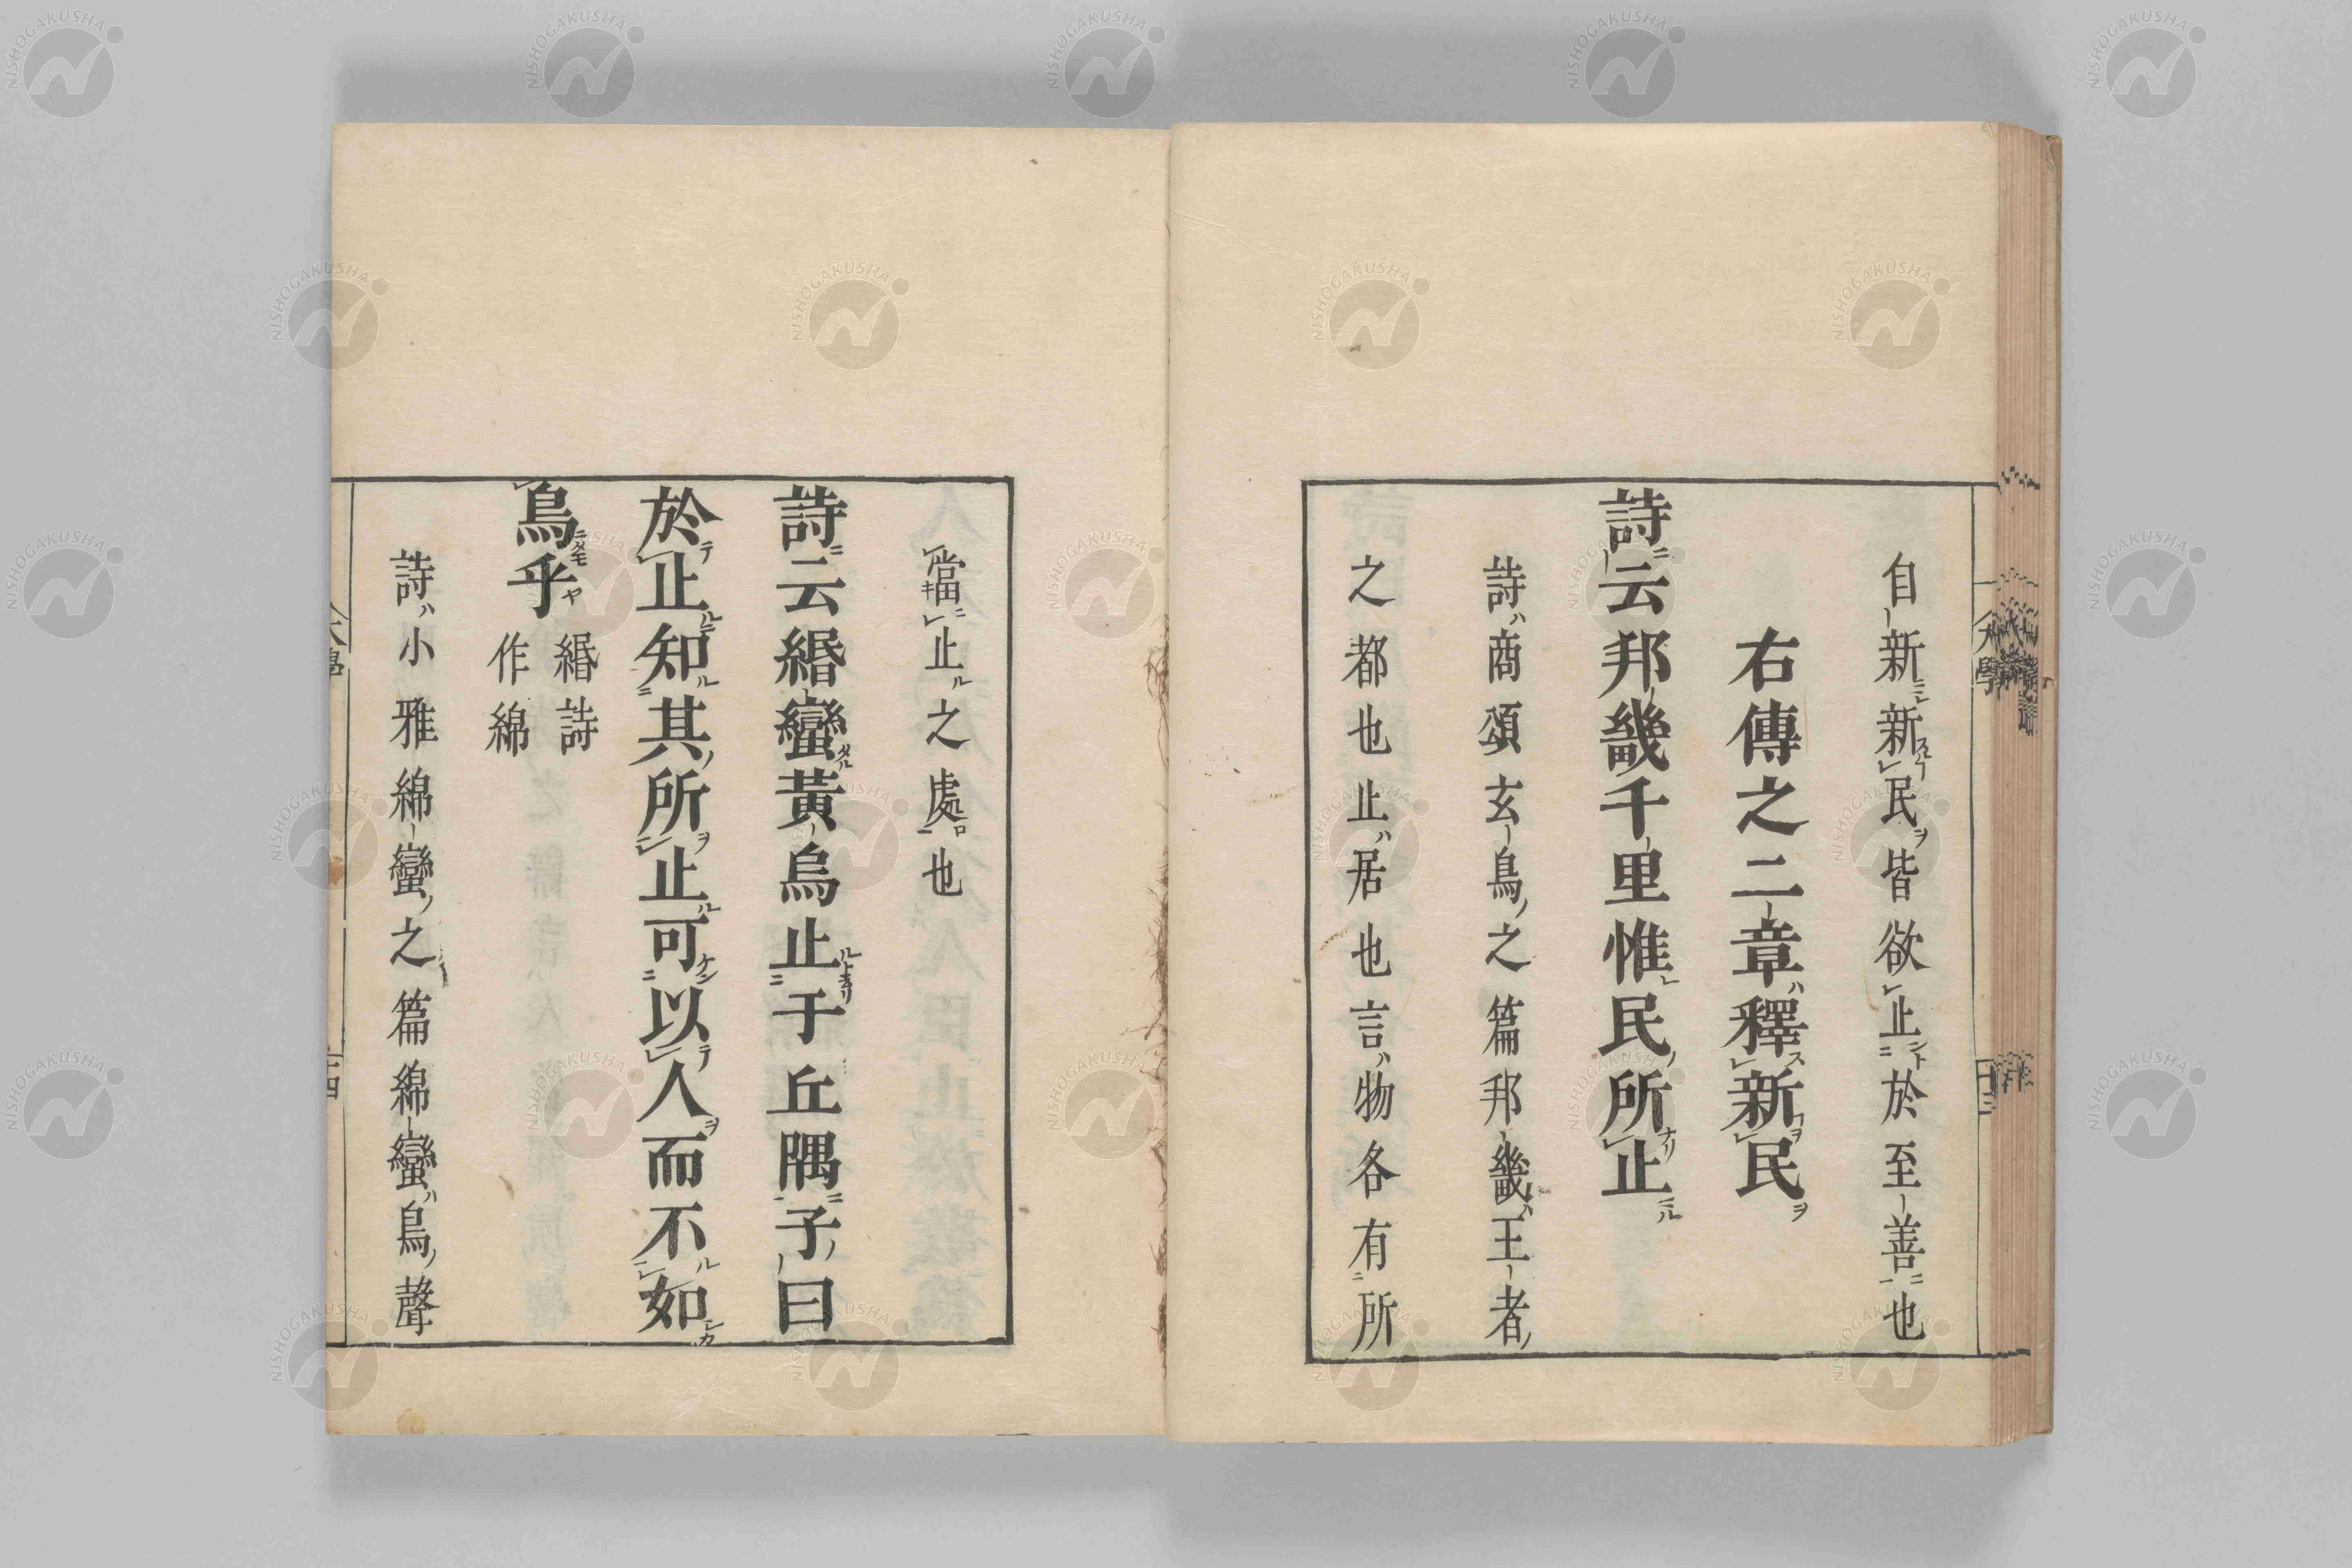 自新新民皆欲止於至善也
右傳之二章釋新民
詩云邦畿千里惟民所止
詩商頌玄鳥之篇邦畿王者
之都也止居也言物各有所
當止之處也
詩云緡蠻黃鳥止于丘隅子曰
於止知其所止可以人而不如
鳥乎
緡詩
作綿
詩小雅綿蠻之篇綿蠻鳥聲
大學
十三
NISHOGAKUSHA